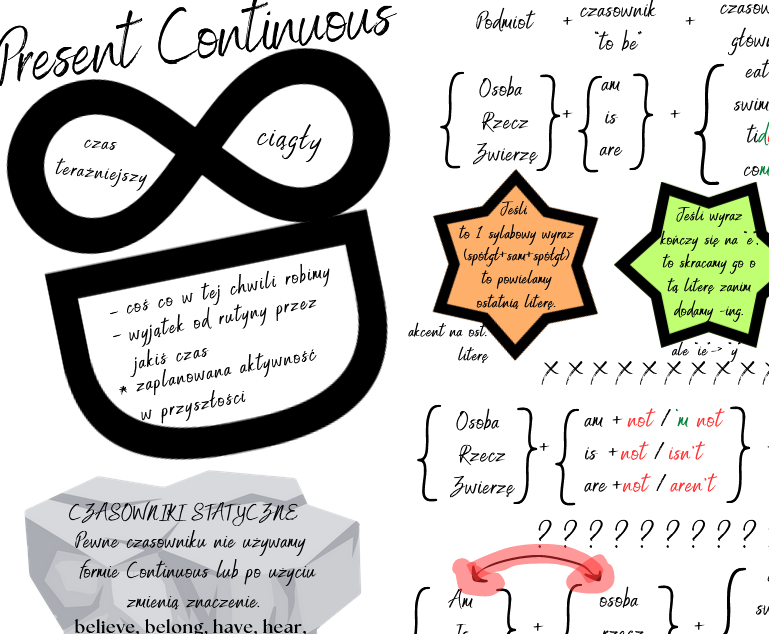 Present Continuous
czas
teraźniejszy
ciągły
- coś co w tej chwili robimy
- wyjątek od rutyny przez
jakiś czas
* zaplanowana aktywność
w przyszłości
CZASOWNIKI STATYCZNE
Pewne czasowniku nie używamy
formie Continuous lub po użyciu
zmienią znaczenie.
believe, belong, have, hear,
Podmiot + czasownik +
"to be"
Osoba
Rzecz
Zwierzę
+
am
is
are
+
eat
swim
Jeśli
to 1 sylabowy wyraz
(spółgł+sam+spółgł)
to powielamy
ostatnią literę.
akcent na ost.
literę
Jeśli wyraz
kończy się na "e",
to skracamy go o
tą literę zanim
dodamy -ing.
ale "ie"->"y"
x x x x x x x x x x
Osoba
Rzecz
Zwierzę
+
am + not / 'm not
is + not / isn't
are + not / aren't
? ? ? ? ? ? ? ? ?
Am
Is
+
osoba
rzecz
+